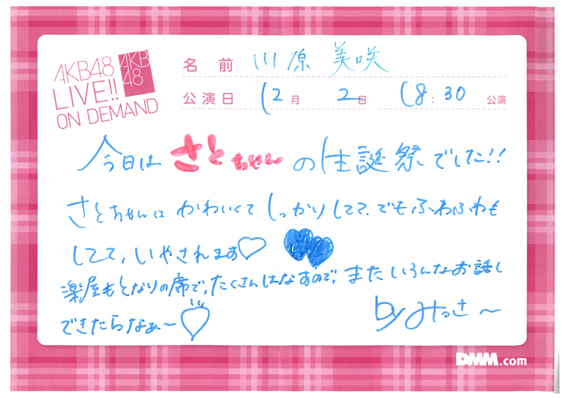 AKB48
LIVE!!
ON DEMAND
AKB
48
名前 川原 美咲
公演日 12月 2日 18:30 公演
今日は さとちゃん の生誕祭でした!!
さとちゃんは かわいくて しっかりしてて、でもふわふわも
してて、いやされます♡
楽屋もとなりの席で、たくさんはなすので、またいろんなお話し
できたらなぁ〜♡
by みっさ〜
DMM.com